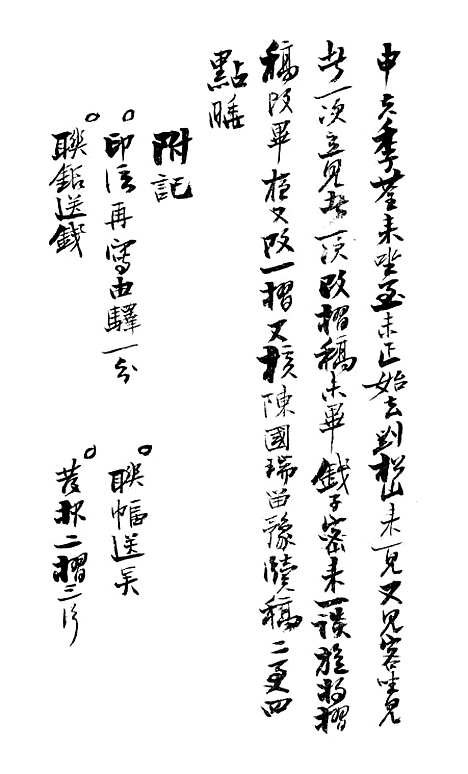 申夫季荃来坐至未正始去劉松山来一見又見客坐見
者一次立見者一次改摺稿未畢錢子密来一談旋将摺
稿改畢夜又改一摺又核陳國瑞留豫牘稿二更四
點睡
附記
○印信再寫由驛一分
○聯幅送吴
○聯鉛送錢
○發报二摺三片